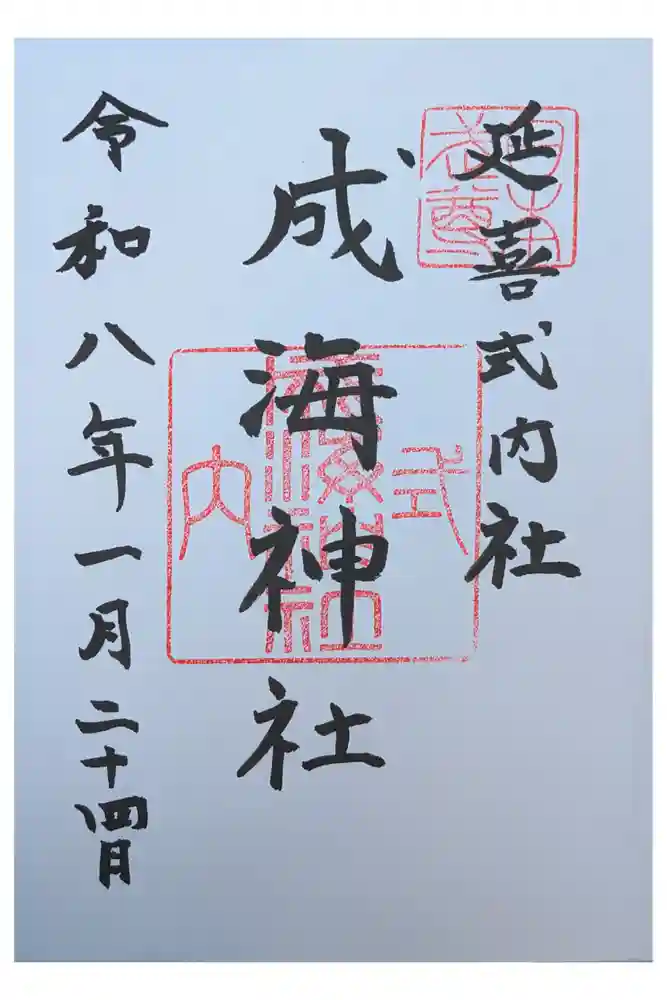 延喜式内社
成海神社
式
成海神社
内
令和八年一月二十四日